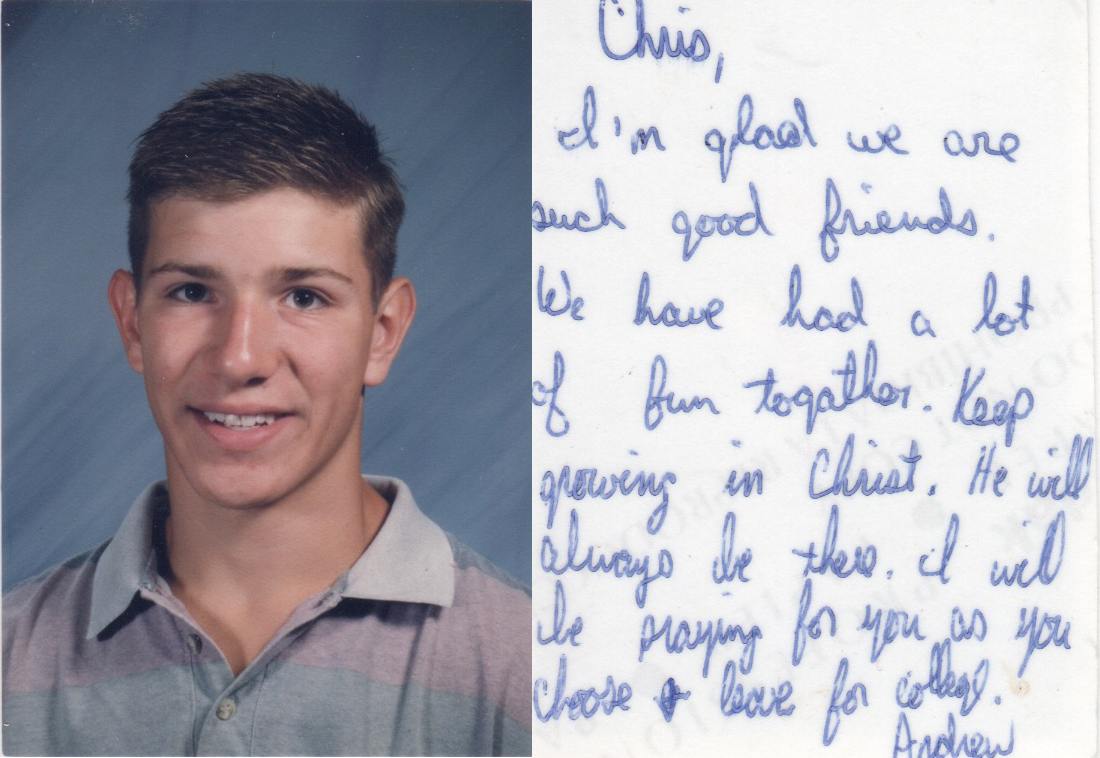 Chris,
I'm glad we are
such good friends.
We have had a lot
of fun together. Keep
growing in Christ. He will
always be there. I will
be praying for you as you
choose & leave for college.
Andrew